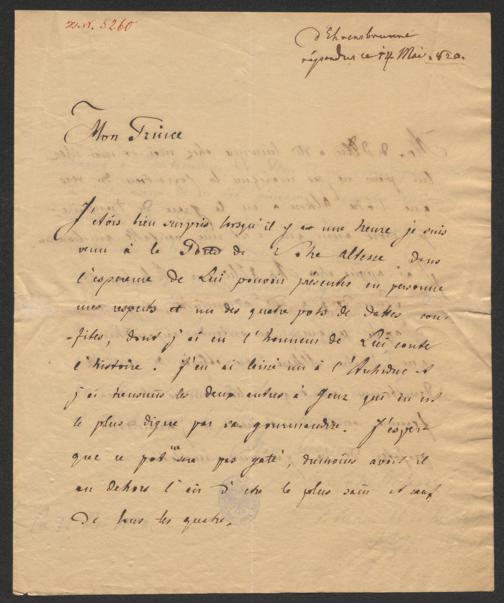 N. 5260
d'Ehrensbrunne
répondus ce 14 Mai 820.
Mon Prince
J'étois bien surpris lorsqu'il y a une heure je suis
venu à la Porte de Votre altesse dans
l'esperence de Lui pouvoir presenter en personne
mes respects et un des quatre pots de dattes con-
-fites, dont j'ai eu l'honneur de Lui conter
l'histoire. J'en ai laissé un à l'Archiduc et
j'ai transmis les deux autres à Genz qui en est
le plus digne par sa gourmandise. J'espère
que ce pot ne sera pas gaté, dumoins avoit-il
au dehors l'air d'etre le plus sain et sauf
de tous les quatre.